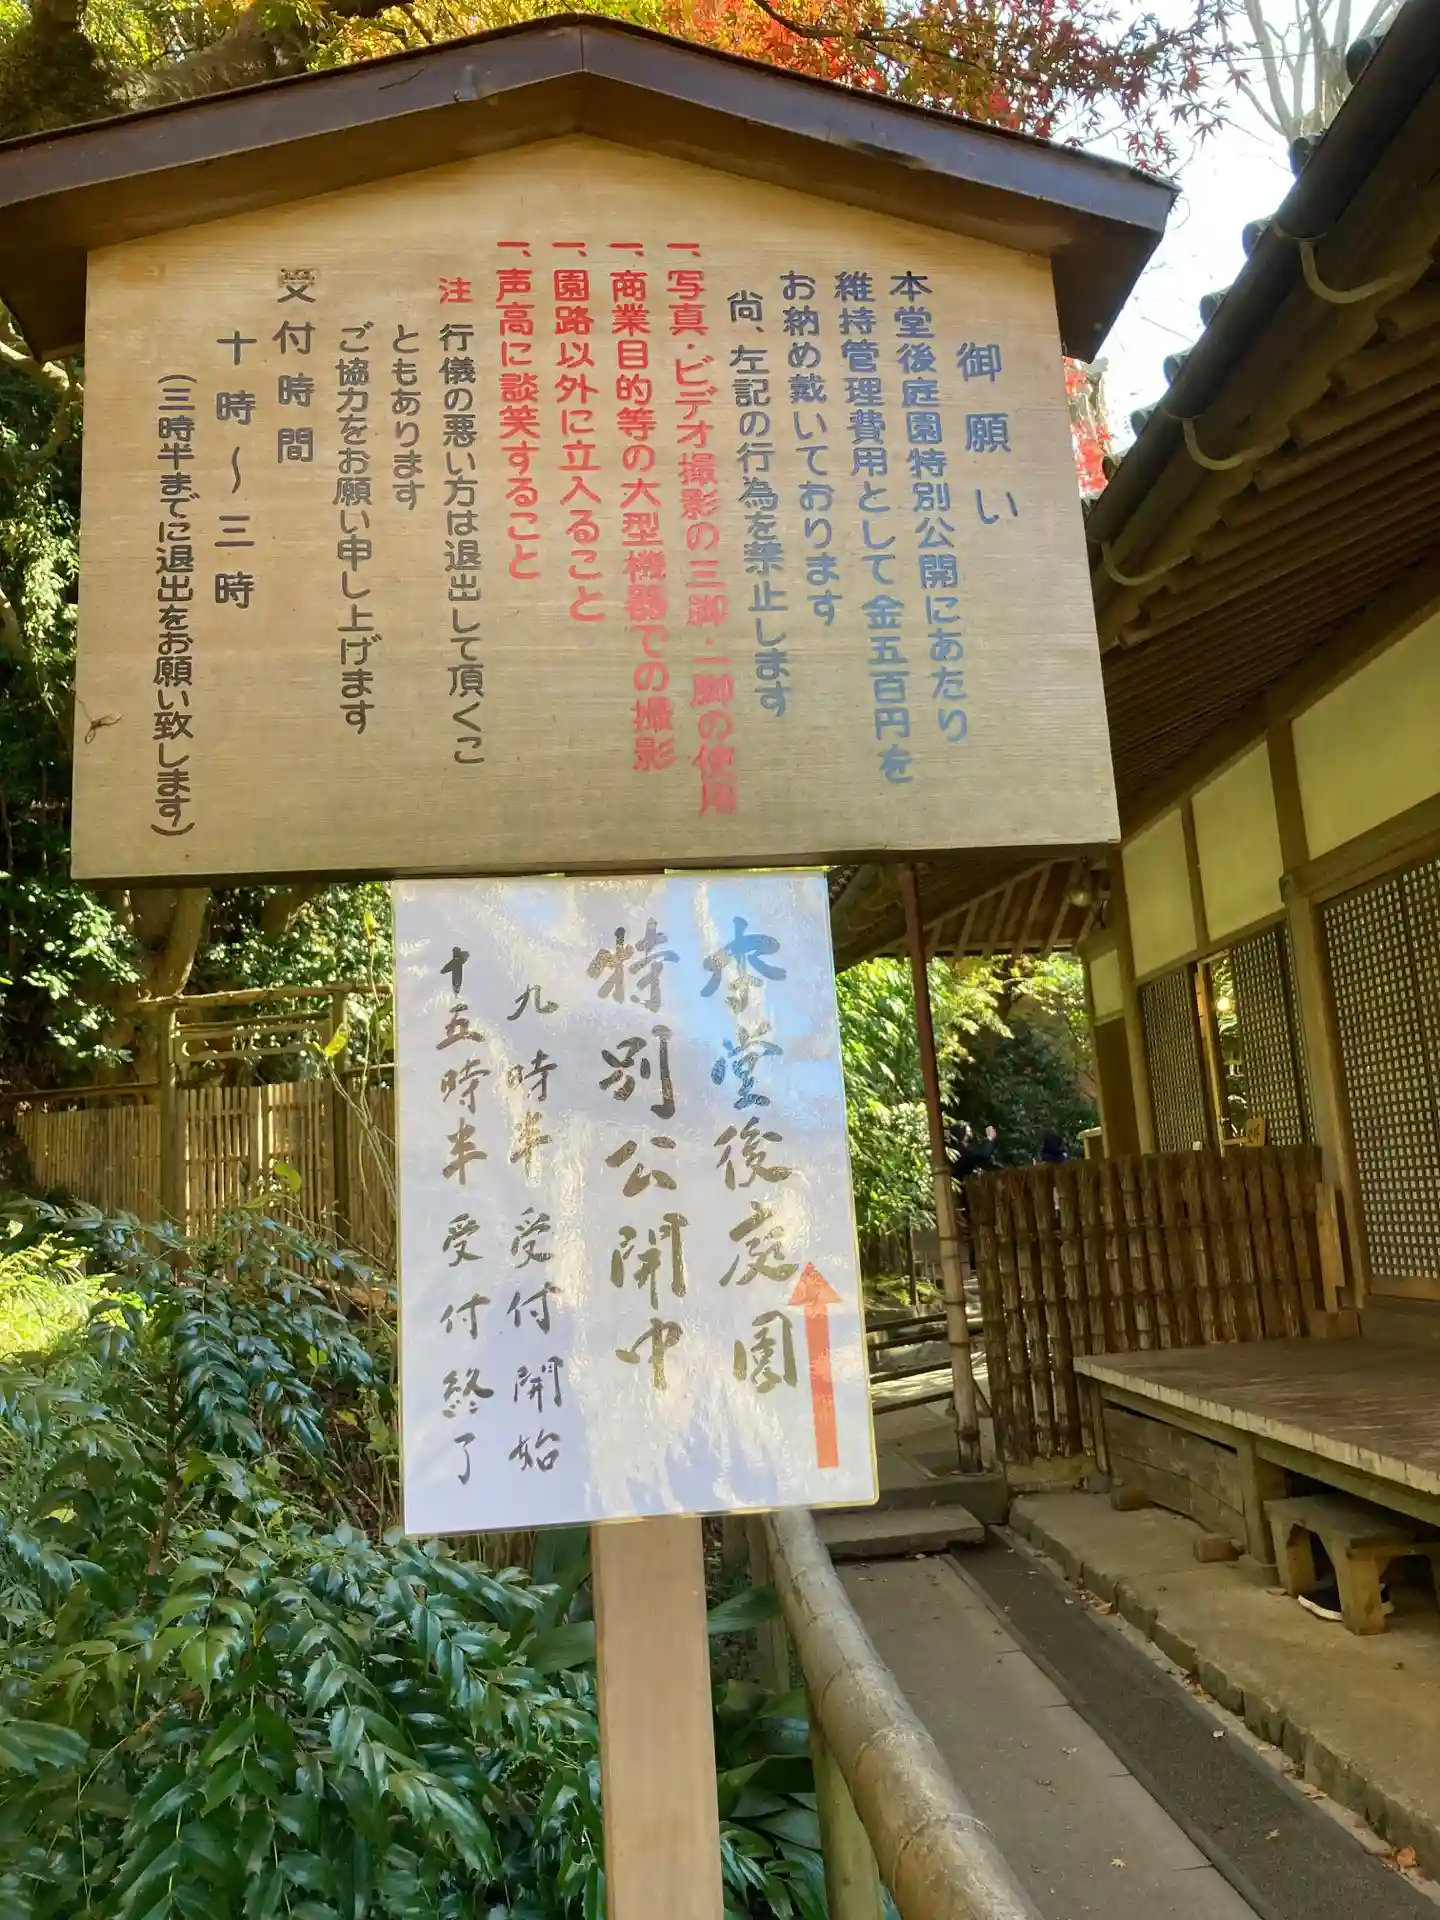 御願い
本堂後庭園特別公開にあたり
維持管理費用として金五百円を
お納め戴いております
尚、左記の行為を禁止します
一、写真・ビデオ撮影の三脚・一脚の使用
一、商業目的等の大型機器での撮影
一、園路以外に立入ること
一、声高に談笑すること
注 行儀の悪い方は退出して頂くこ
ともあります
ご協力をお願い申し上げます
受付時間
十時〜三時
(三時半までに退出をお願い致します)
本堂後庭園
特別公開中
九時半 受付開始
十五時半 受付終了